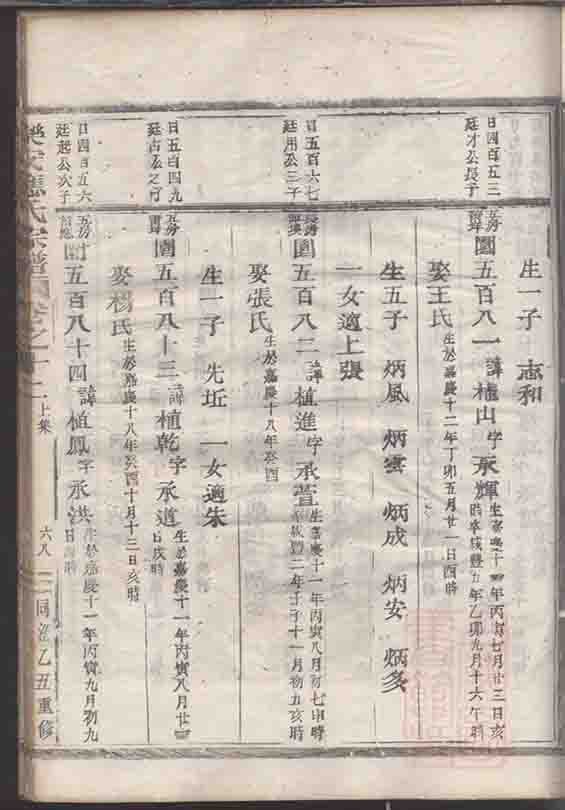 生一子 志和
日四百五三
廷才公長子
房
圍五百八一 諱植山 字承輝
生嘉慶十一年丙寅七月廿三日亥
時卒咸豐五年乙卯九月十六午時
娶王氏 生於嘉慶十二年丁卯五月廿一日酉時
生五子 炳風 炳雲 炳成 炳安 炳多
一女適上張
日五百六七
廷用公三子
長房
圍五百八二 諱植進 字承萱
生嘉慶十一年丙寅八月初七申時
卒咸豐二年壬子十一月初五亥時
娶張氏 生於嘉慶十八年癸酉
生一子 先坵 一女適朱
日五百四九
廷占公之子
五房
圍五百八十三 諱植乾 字承道
生於嘉慶十一年丙寅八月廿四
日戌時
娶楊氏 生於嘉慶十八年癸酉十月十三日亥時
日四百五六
廷起公次子
五房
五百八十四 諱植鳳 字承洪
生於嘉慶十一年丙寅九月初九
日 時
氏宗譜 卷之十二 上集 六八 同治乙丑重修